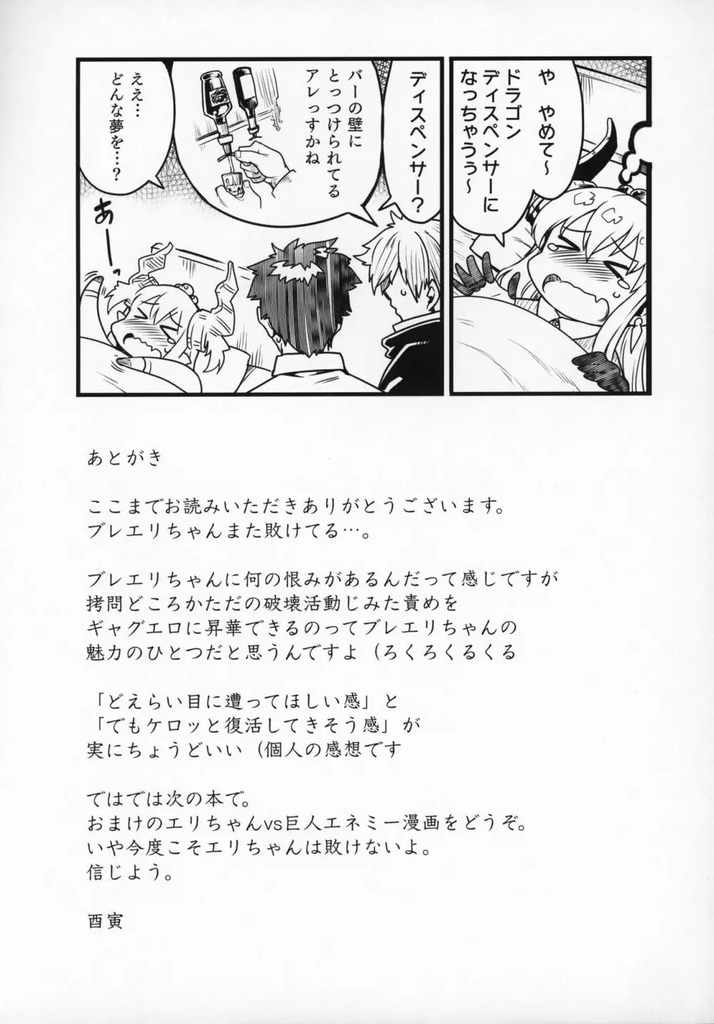 や　やめて～
ドラゴン
ディスペンサーに
なっちゃうぅ～
ディスペンサー？
バーの壁に
とっつけられてる
アレっすかね
ええ…
どんな夢を…？
あ゛ーーっ
あとがき
ここまでお読みいただきありがとうございます。
ブレエリちゃんまた敗けてる…。
ブレエリちゃんに何の恨みがあるんだって感じですが
拷問どころかただの破壊活動じみた責めを
ギャグエロに昇華できるのってブレエリちゃんの
魅力のひとつだと思うんですよ（ろくろくるくる
「どえらい目に遭ってほしい感」と
「でもケロッと復活してきそう感」が
実にちょうどいい（個人の感想です
ではでは次の本で。
おまけのエリちゃんvs巨人エネミー漫画をどうぞ。
いや今度こそエリちゃんは敗けないよ。
信じよう。
酉寅